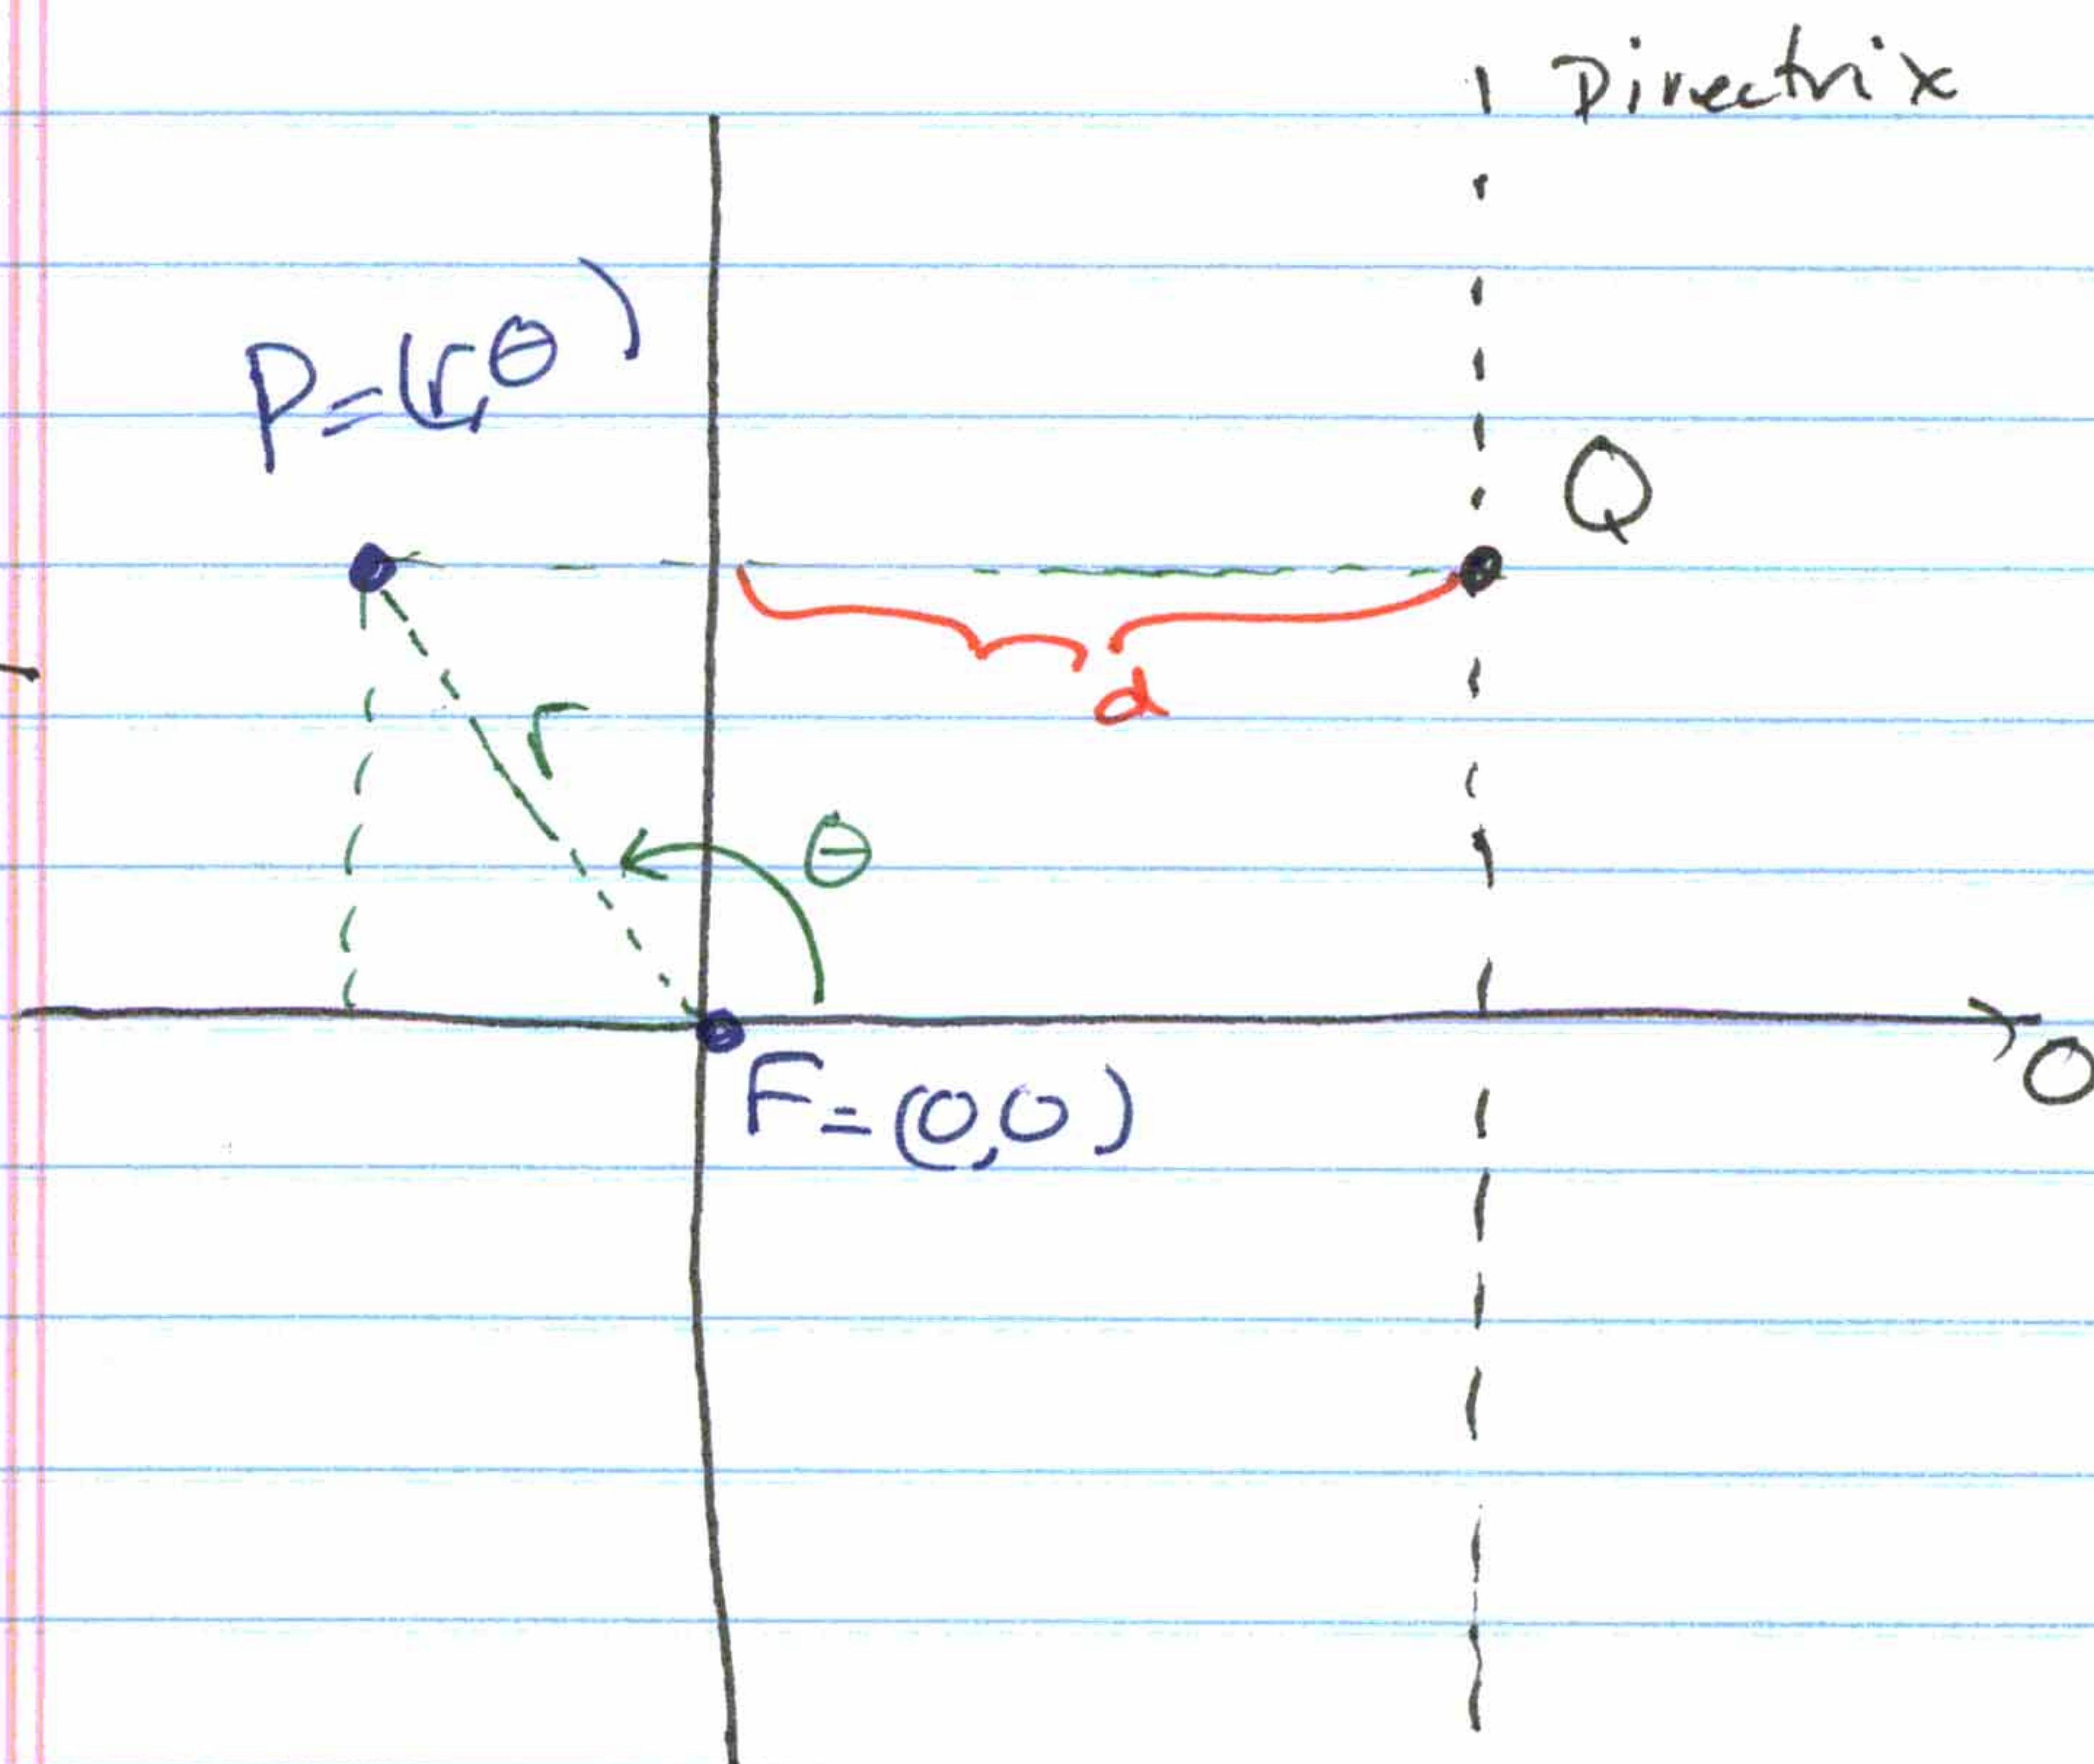 Directrix
P=(r,θ)
Q
d
r
θ
0
F=(0,0)